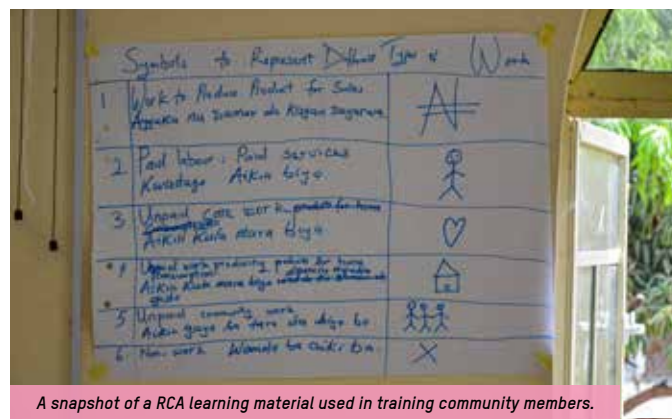 Symbols to Represent Different Types of Work
1 Work to Produce Product for Sales
Ayyuka na Samar da Kayan Sayarwa
2 Paid labour: Paid services
Kwadago Aikin biya
3 Unpaid Care work products for home
Aikin Kula mara biya
4 Unpaid work producing products for home
consumption
Aikin Kula mara biya
gida
5 Unpaid community work
Aikin gaya ba
6 Non-work Wanda ba aiki ba
A snapshot of a RCA learning material used in training community members.